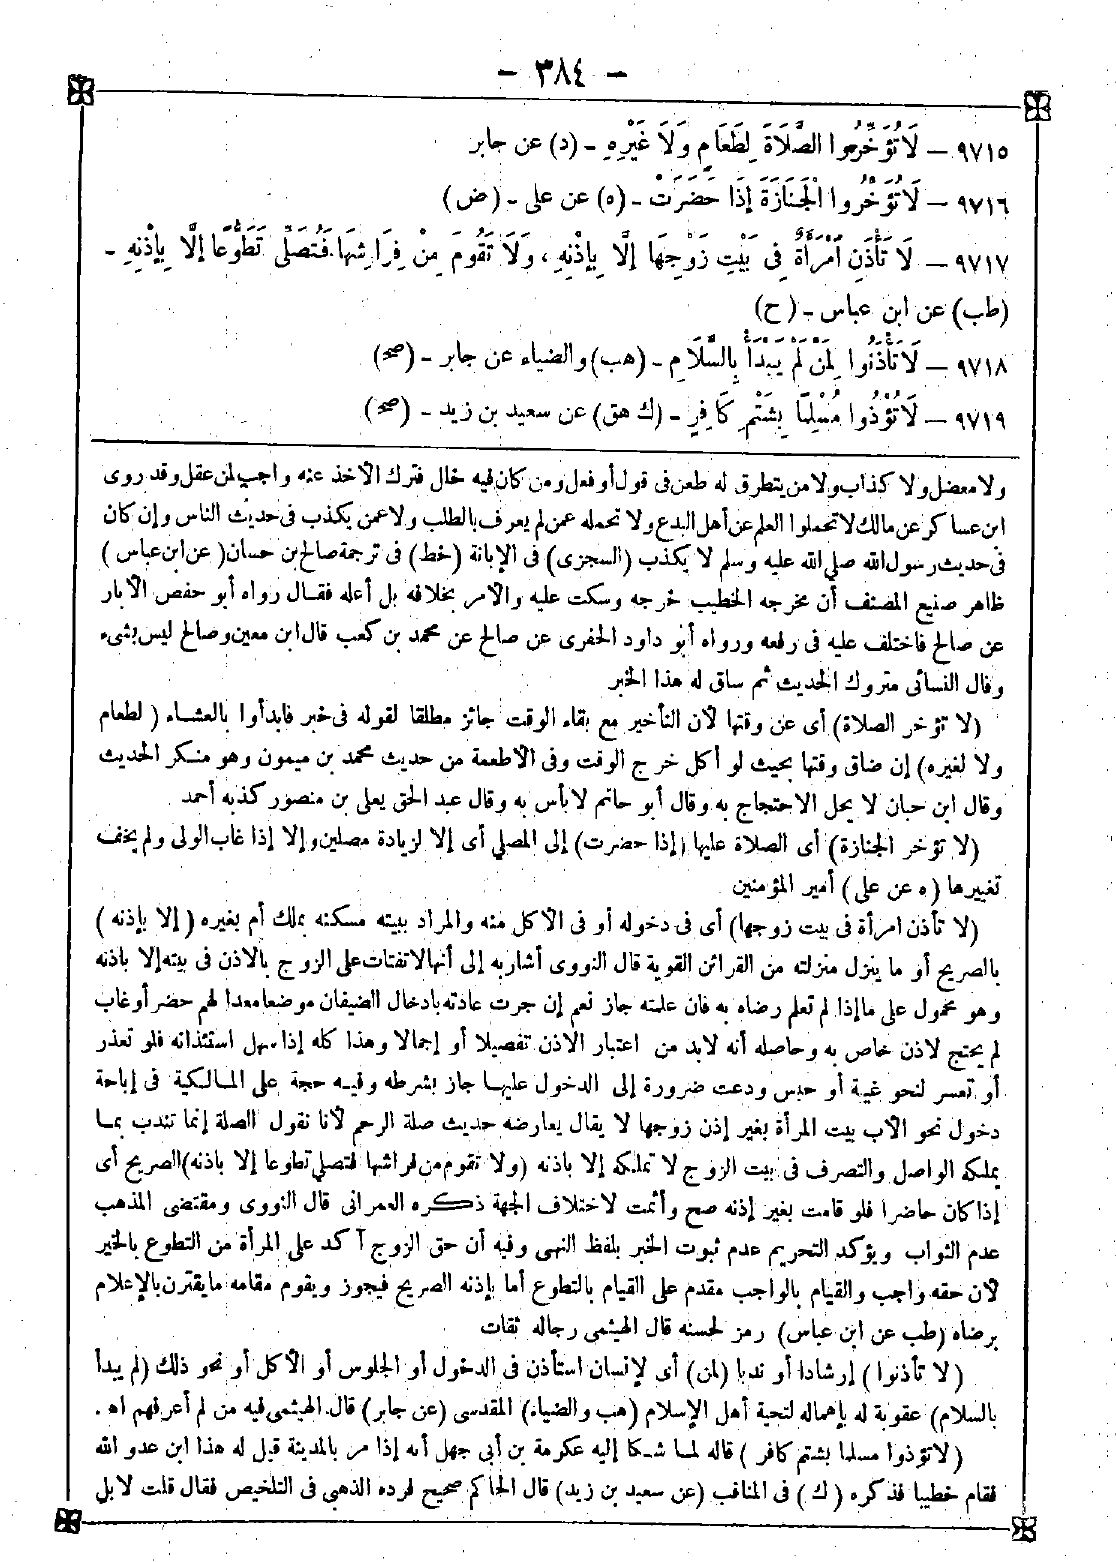 - ٣٨٤ -
٩٧١٥ - لَا تُؤَخِّرُوا الصَّلَاةَ لِطَعَامٍ وَلَا غَيْرِهِ - (د) عن جابر
٩٧١٦ - لَا تُؤَخِّرُوا الْجَنَازَةَ إِذَا حَضَرَتْ - (ه) عن على - (ض)
٩٧١٧ - لَا تَأْذَنِ امْرَأَةٌ فِى بَيْتِ زَوْجِهَا إِلَّا بِإِذْنِهِ ، وَلَا تَقُومَ مِنْ فِرَاشِهَا فَتُصَلِّىَ تَطَوُّعًا إِلَّا بِإِذْنِهِ -
(طب) عن ابن عباس - (ح)
٩٧١٨ - لَا تَأْذَنُوا لِمَنْ لَمْ يَبْدَأْ بِالسَّلَامِ - (هب) والضياء عن جابر - (صح)
٩٧١٩ - لَا تُؤْذُوا مُسْلِمًا بِشَتْمِ كَافِرٍ - (ك هق) عن سعيد بن زيد - (صح)
ولا معضل ولا كذاب ولا من يتطرق له طعن فى قول أو فعل ومن كان فيه خال فترك الأخذ عنه واجب لمن عقل وقد روى
ابن عساكر عن مالك لا تحملوا العلم عن أهل البدع ولا تحمله عمن لم يعرف بالطلب ولا عمن يكذب فى حديث الناس وإن كان
فى حديث رسول الله صلى الله عليه وسلم لا يكذب (السجزى) فى الإبانة (خط) فى ترجمة صالح بن حسان (عن ابن عباس )
ظاهر صنيع المصنف أن مخرجه الخطيب خرجه وسكت عليه والأمر بخلافه بل أعله فقال رواه أبو حفص الأبار
عن صالح فاختلف عليه فى رفعه ورواه أبو داود الحفرى عن صالح عن محمد بن كعب قال ابن معين وصالح ليس بشىء
وقال النسائى متروك الحديث ثم ساق له هذا الخبر
(لا تؤخر الصلاة) أى عن وقتها لأن التأخير مع بقاء الوقت جائز مطلقا لقوله فى خبر فابدأوا بالعشاء ( لطعام
ولا لغيره) إن ضاق وقتها بحيث لو أكل خرج الوقت وفى الأطعمة من حديث محمد بن ميمون وهو منكر الحديث
وقال ابن حبان لا يحل الاحتجاج به وقال أبو حاتم لا بأس به وقال عبد الحق يعلى بن منصور كذبه أحمد
(لا تؤخر الجنازة) أى الصلاة عليها (إذا حضرت) إلى المصلي أى إلا لزيادة مصلين وإلا إذا غاب الولى ولم يخف
تغييرها (ه عن على) أمير المؤمنين
(لا تأذن امرأة فى بيت زوجها) أى فى دخوله أو فى الأكل منه والمراد ببيته مسكنه بملك أم بغيره (إلا بإذنه )
بالصريح أو ما ينزل منزلته من القرائن القوية قال النووى أشار به إلى أنها لا تفتات على الزوج بالاذن فى بيته إلا باذنه
وهو محمول على ما إذا لم تعلم رضاه به فان علمته جاز نعم إن جرت عادته بادخال الضيفان موضعا معدا لهم حضر أو غاب
لم يحتج لاذن خاص به وحاصله أنه لابد من اعتبار الاذن تفصيلا أو إجمالا وهذا كله إذا سهل استئذانه فلو تعذر
أو تعسر لنحو غيبة أو حبس ودعت ضرورة إلى الدخول عليها جاز بشرطه وفيه حجة على المالكية فى إباحة
دخول نحو الأب بيت المرأة بغير إذن زوجها لا يقال يعارضه حديث صلة الرحم لأنا نقول الصلة إنما تندب بما
يملكه الواصل والتصرف فى بيت الزوج لا تملكه إلا باذنه (ولا تقوم من فراشها فتصلي تطوعا إلا باذنه) الصريح أى
إذا كان حاضرا فلو قامت بغير إذنه صح وأثمت لاختلاف الجهة ذكره العمرانى قال النووى ومقتضى المذهب
عدم الثواب ويؤكد التحريم عدم ثبوت الخبر بلفظ النهى وفيه أن حق الزوج آكد على المرأة من التطوع بالخير
لأن حقه واجب والقيام بالواجب مقدم على القيام بالتطوع أما بإذنه الصريح فيجوز ويقوم مقامه ما يقترن بالإعلام
برضاه (طب عن ابن عباس) رمز لحسنه قال الهيثمى رجاله ثقات
(لا تأذنوا) إرشادا أو ندبا (لمن) أى لإنسان استأذن فى الدخول أو الجلوس أو الأكل أو نحو ذلك (لم يبدأ
بالسلام) عقوبة له بإهماله لتحية أهل الإسلام (هب والضياء) المقدسى (عن جابر) قال الهيثمى فيه من لم أعرفهم اه .
(لا تؤذوا مسلما بشتم كافر ) قاله لما شكا إليه عكرمة بن أبى جهل أنه إذا مر بالمدينة قيل له هذا ابن عدو الله
فقام خطيبا فذكره (ك) فى المناقب (عن سعيد بن زيد) قال الحاكم صحيح فرده الذهبى فى التلخيص فقال قلت لا بل